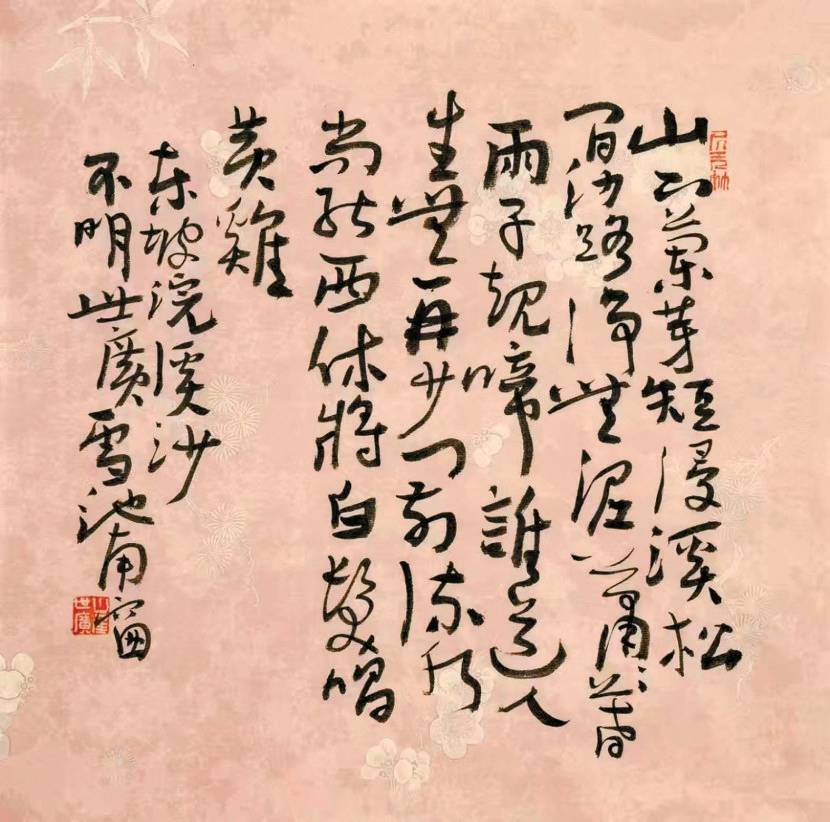 山下蘭芽短浸溪松
間沙路淨無泥蕭々暮
雨子規啼誰道人
生無再少門前流水
尚能西休將白髮唱
黃雞
東坡浣溪沙
不明世廣雪池南窗
世廣